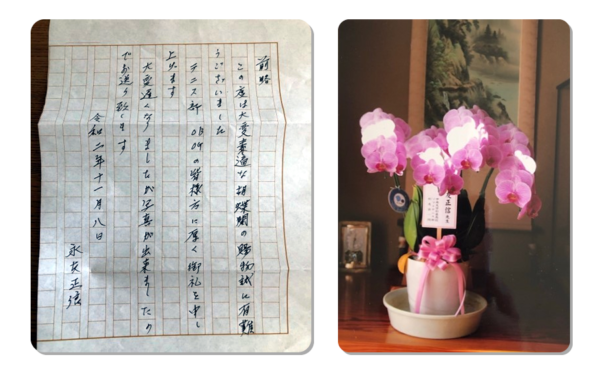 前略
この度は大変素適な胡蝶蘭の贈物誠に有難
うございました
テニス部OBOGの皆様方に厚く御礼を申し
上げます
大変遅くなりましたが写真が出来ましたの
でお送り致します
令和二年十一月八日